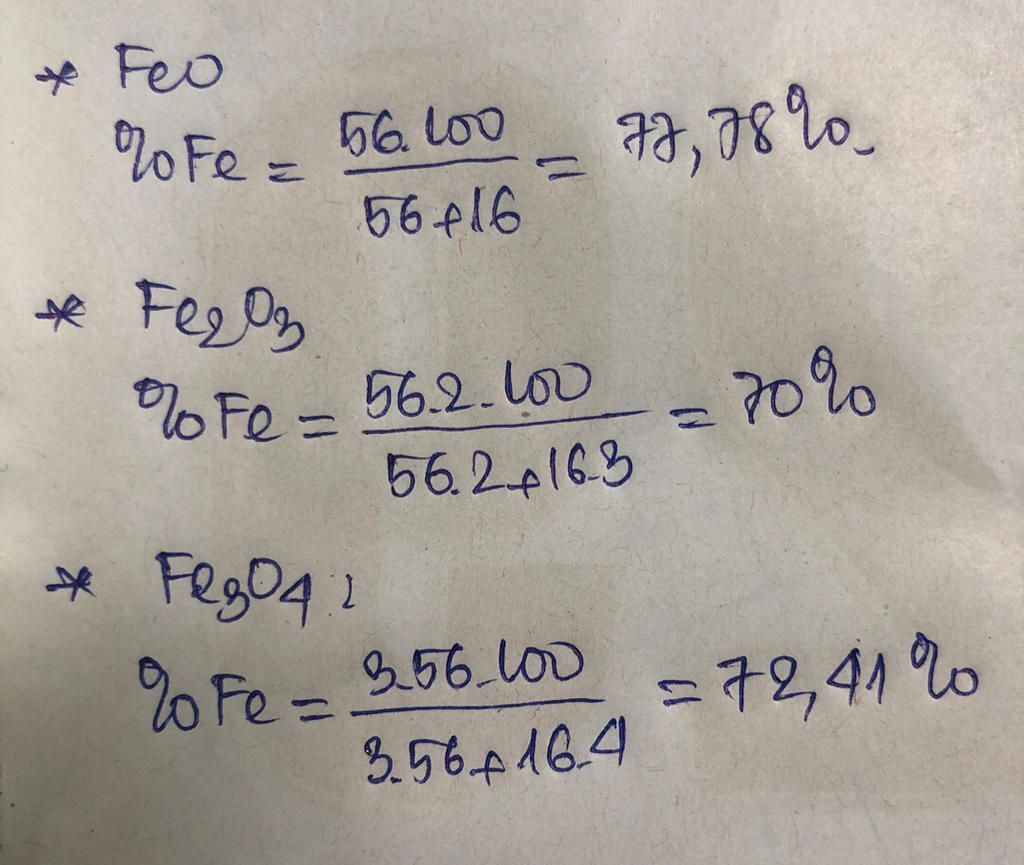 * FeO
%Fe = 56.100 / 56+16 = 77,78%.
* Fe2O3
%Fe = 56.2.100 / 56.2+16.3 = 70%
* Fe3O4:
%Fe = 3.56.100 / 3.56+16.4 = 72,41%